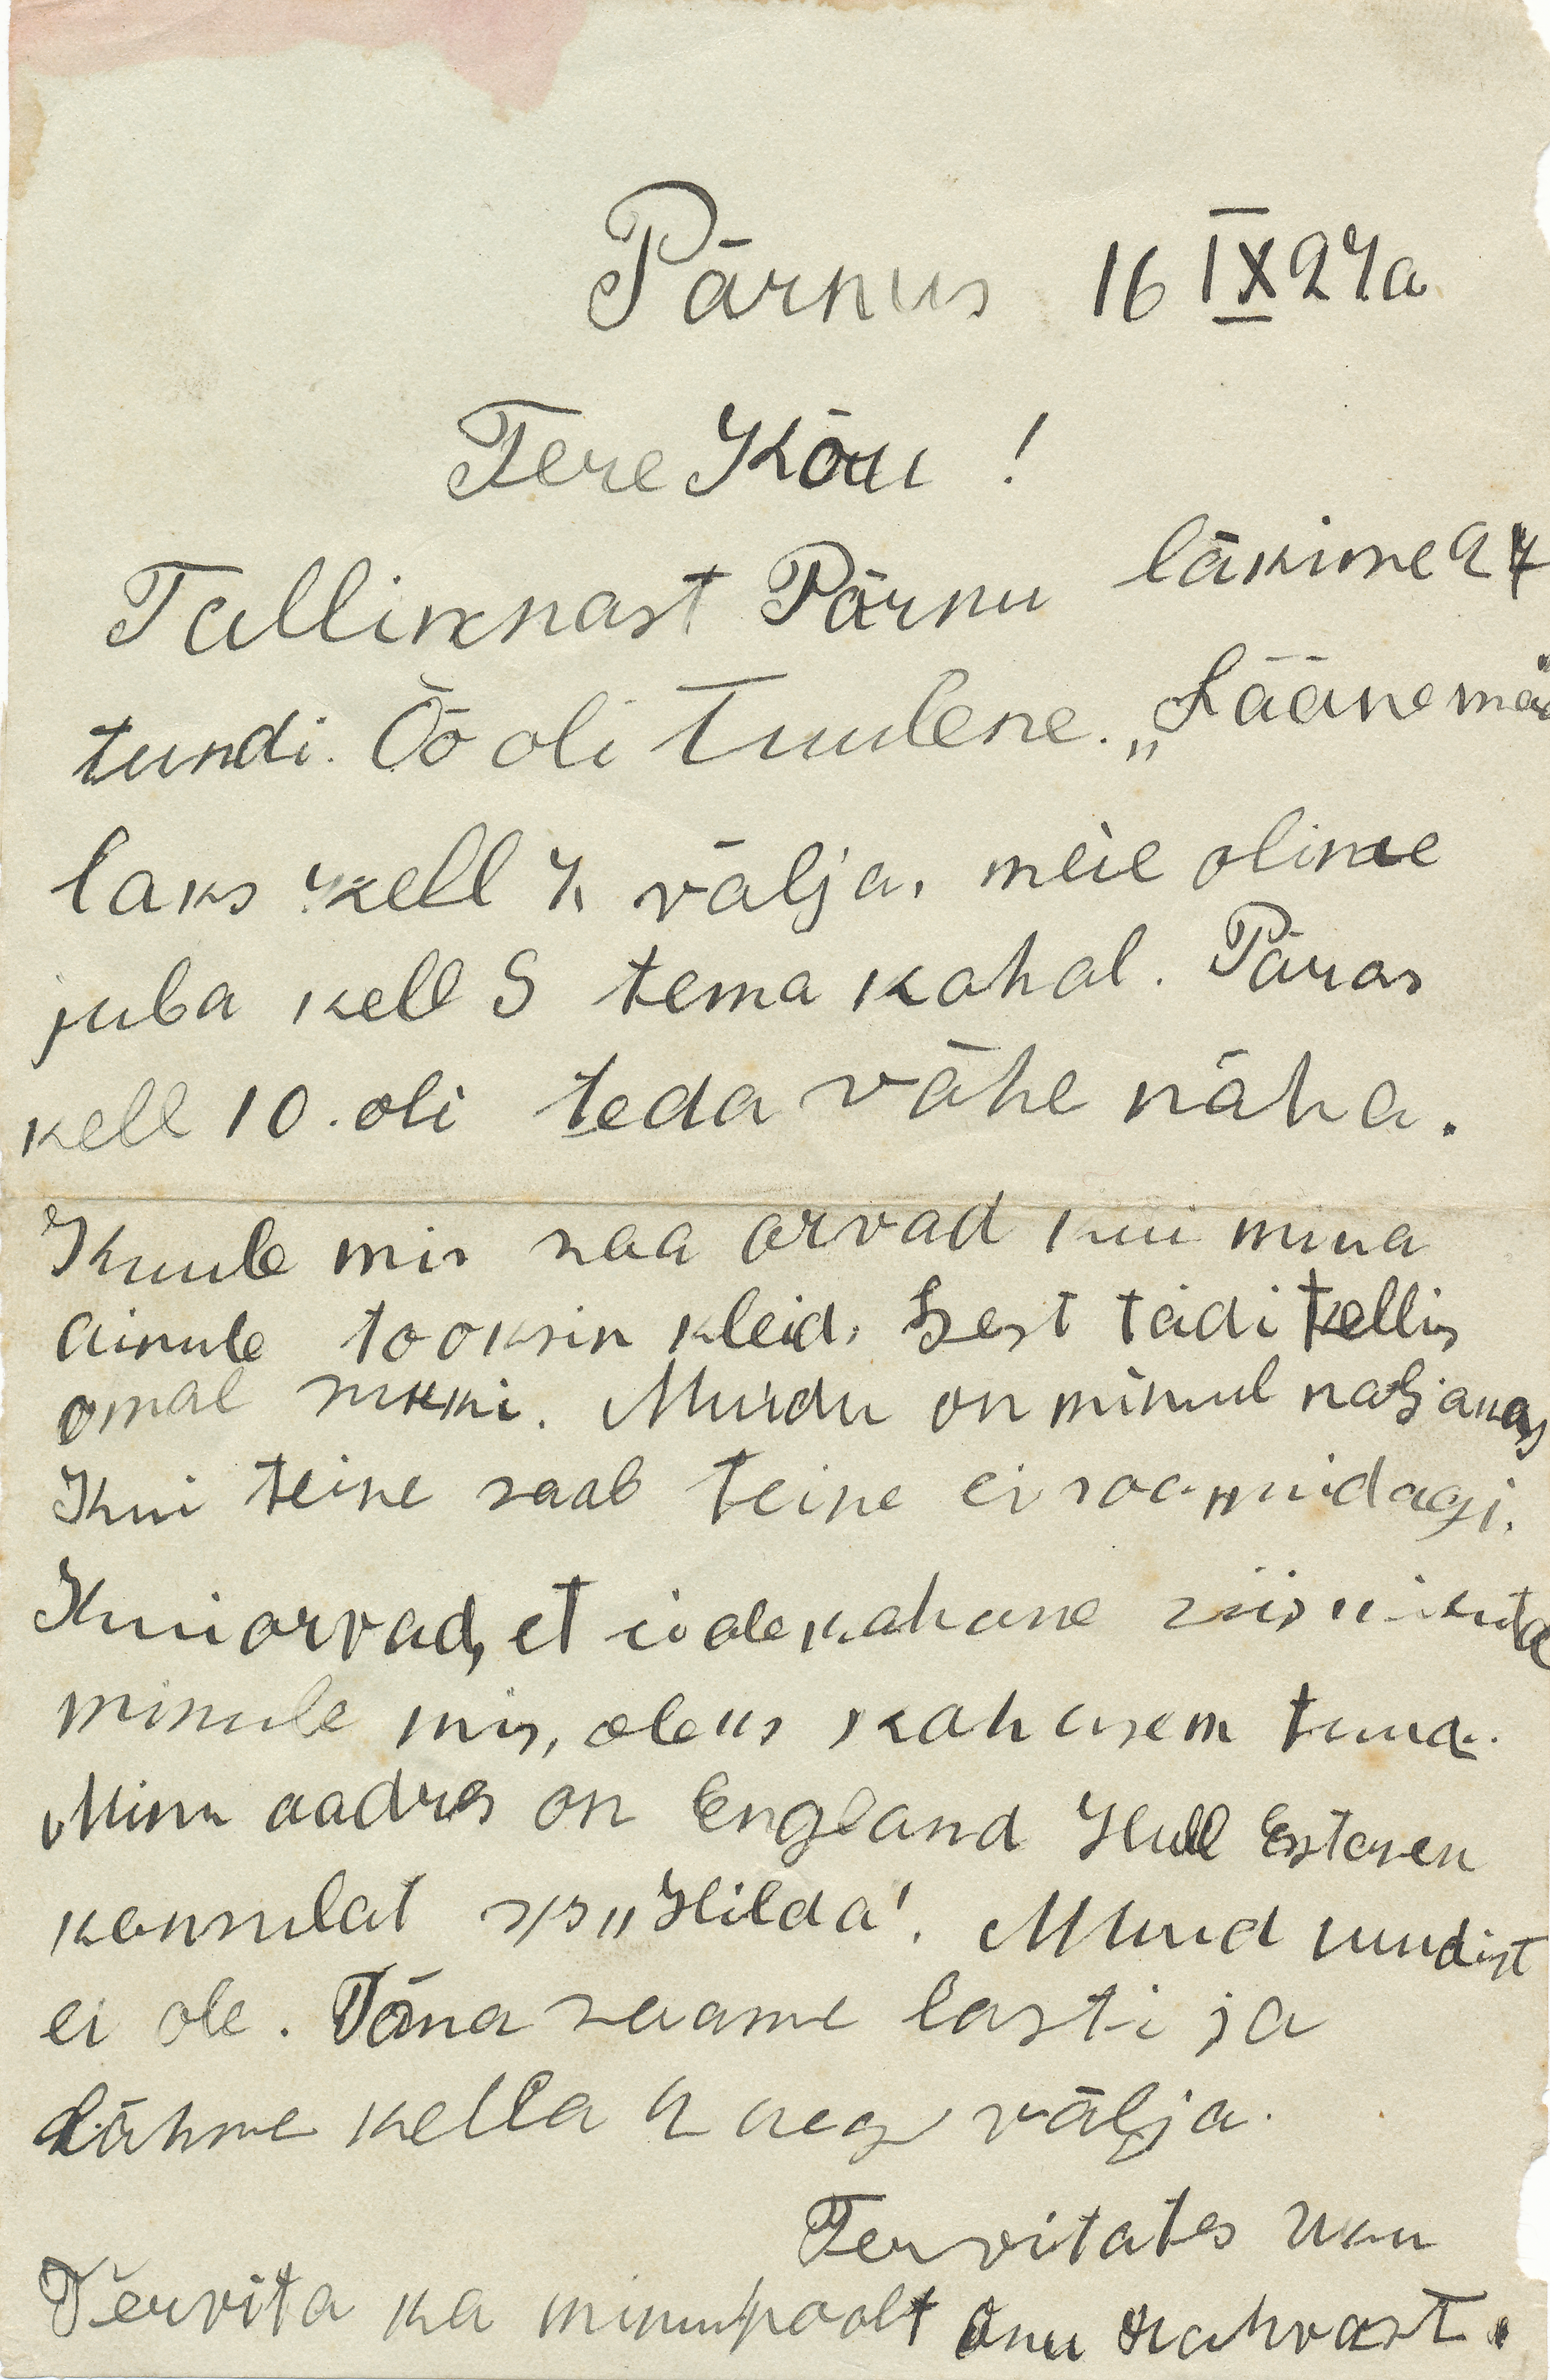 Pärnus 16 IX 27a
Tere Kõu!
Tallinnast Pärnu läksime 27
tundi. Öö oli tuulene. „Läänemaa
läks kell 7 välja, meie olime
juba kell 5 tema kohal. Päras
kell 10. oli teda vähe näha.
Kuule mis saa arvad kui mina
Ainule tooksin kleid, Sest tädi tellis
omal sukki. Muidu on minul naljakas
Kui teine saab teine ei saa midagi.
Kui arvad, et ei ole kahane siis
minule mis, oleks kahasem tuua.
Minu aadres on England Hull Estonen
konsulat s/s „Hilda". Muud uudist
ei ole. Täna saame lasti ja
Lähme kella 2 aeg välja.
Tervitates Uku
Tervita ka minupoolt onu rahvast.